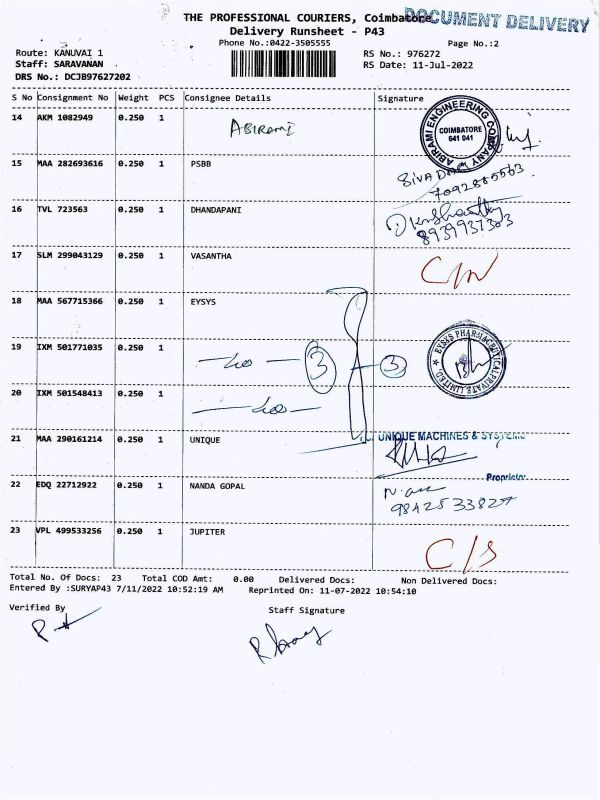 THE PROFESSIONAL COURIERS, Coimbatore
DOCUMENT DELIVERY
Delivery Runsheet - P43
Phone No.:0422-3505555
Page No.:2
Route: KANUVAI 1
RS No.: 976272
Staff: SARAVANAN
RS Date: 11-Jul-2022
DRS No.: DCJB97627202
S No Consignment No Weight PCS Consignee Details Signature
14 AKM 1082949 0.250 1 ABIRAMI
ABIRAMI ENGINEERING COMPANY
COIMBATORE
641 041
15 MAA 282693616 0.250 1 PSBB
7092885563.
16 TVL 723563 0.250 1 DHANDAPANI
8939937303
17 SLM 299043129 0.250 1 VASANTHA
18 MAA 567715366 0.250 1 EYSYS
EYSYS PHARMACEUTICAL PRIVATE LIMITED
19 IXM 501771035 0.250 1 3 3
20 IXM 501548413 0.250 1
21 MAA 290161214 0.250 1 UNIQUE
UNIQUE MACHINES & SYSTEMS
Proprietor
22 EDQ 22712922 0.250 1 NANDA GOPAL
98425 33827
23 VPL 499533256 0.250 1 JUPITER
C/S
Total No. Of Docs: 23 Total COD Amt: 0.00 Delivered Docs: Non Delivered Docs:
Entered By :SURYAP43 7/11/2022 10:52:19 AM Reprinted On: 11-07-2022 10:54:10
Verified By Staff Signature